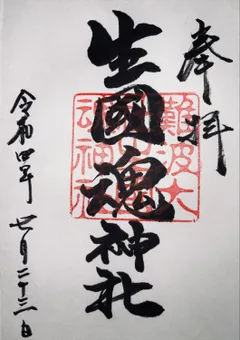 奉拝
生國魂神社
難波大
魂神社
令和四年 七月二十三日